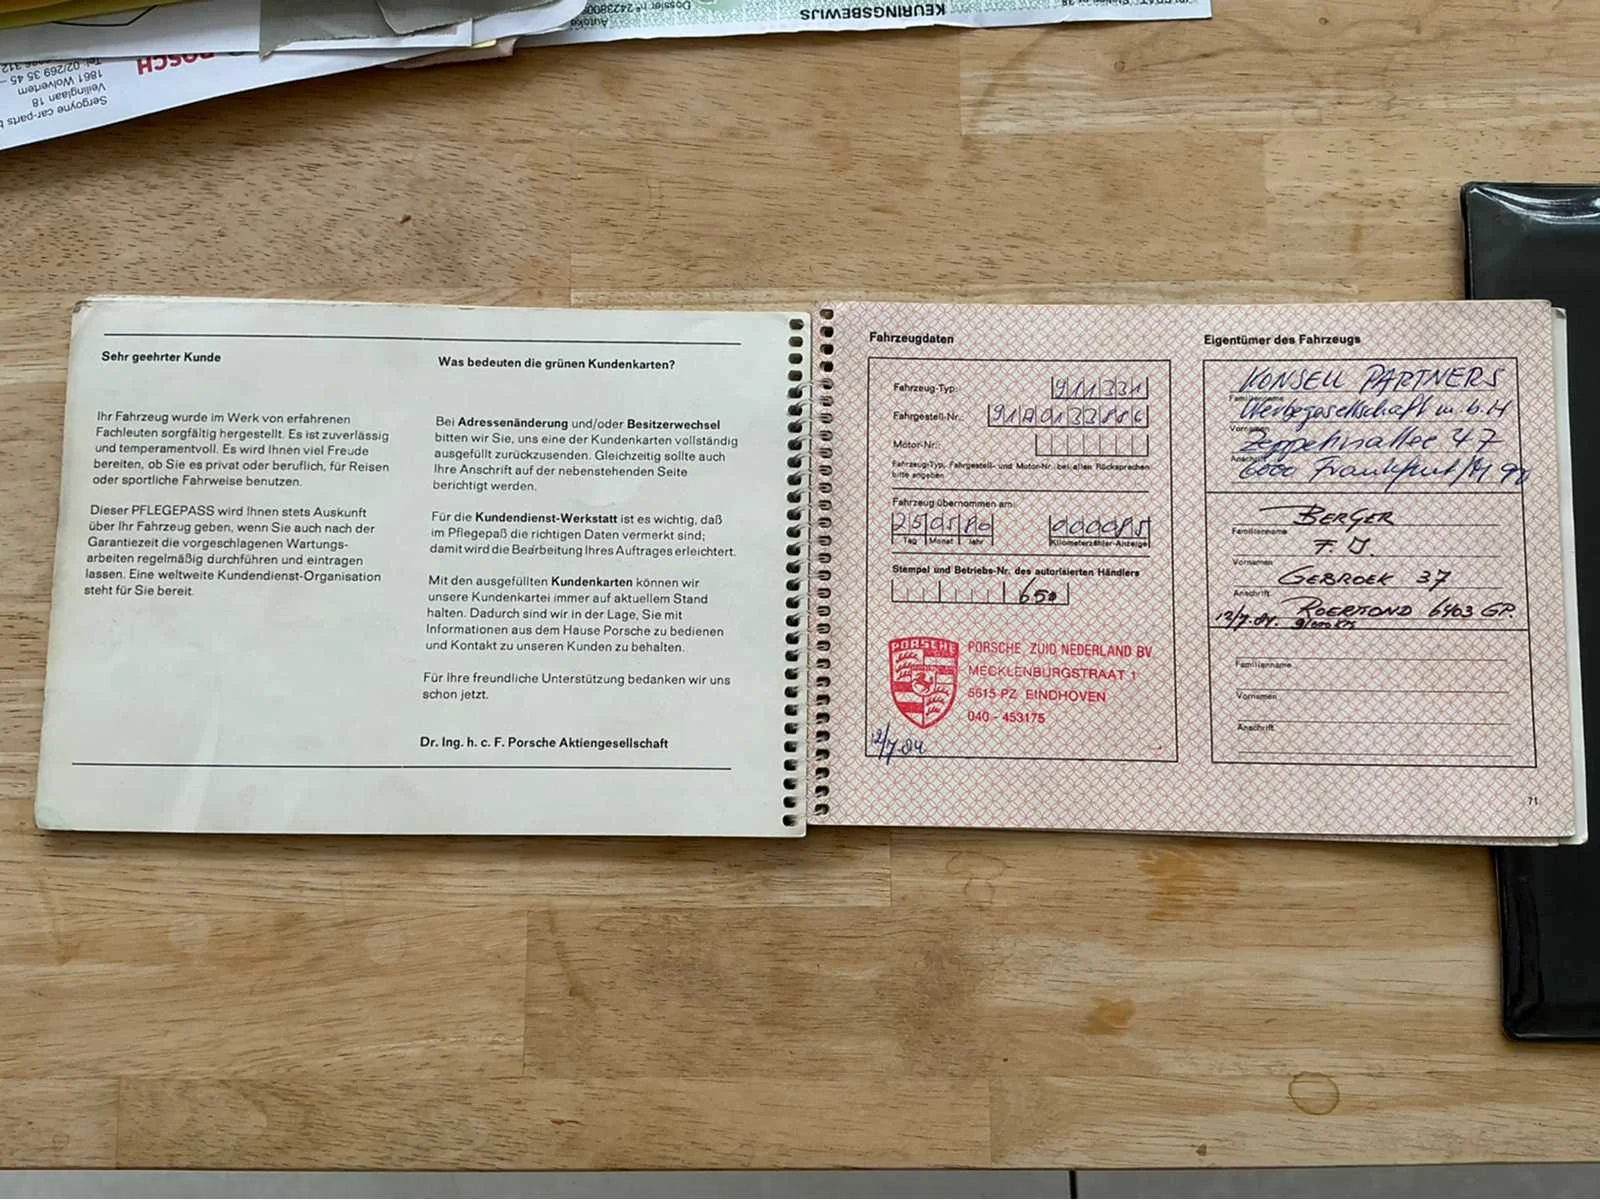 KEURINGSBEWIJS
BOSCH
Sergoyne car-parts
Veilinglaan 18
1861 Wolvertem
Tel. 02/269 35 45
Sehr geehrter Kunde
Ihr Fahrzeug wurde im Werk von erfahrenen
Fachleuten sorgfältig hergestellt. Es ist zuverlässig
und temperamentvoll. Es wird Ihnen viel Freude
bereiten, ob Sie es privat oder beruflich, für Reisen
oder sportliche Fahrweise benutzen.
Dieser PFLEGEPASS wird Ihnen stets Auskunft
über Ihr Fahrzeug geben, wenn Sie auch nach der
Garantiezeit die vorgeschlagenen Wartungs-
arbeiten regelmäßig durchführen und eintragen
lassen. Eine weltweite Kundendienst-Organisation
steht für Sie bereit.
Was bedeuten die grünen Kundenkarten?
Bei Adressenänderung und/oder Besitzerwechsel
bitten wir Sie, uns eine der Kundenkarten vollständig
ausgefüllt zurückzusenden. Gleichzeitig sollte auch
Ihre Anschrift auf der nebenstehenden Seite
berichtigt werden.
Für die Kundendienst-Werkstatt ist es wichtig, daß
im Pflegepaß die richtigen Daten vermerkt sind;
damit wird die Bearbeitung Ihres Auftrages erleichtert.
Mit den ausgefüllten Kundenkarten können wir
unsere Kundenkartei immer auf aktuellem Stand
halten. Dadurch sind wir in der Lage, Sie mit
Informationen aus dem Hause Porsche zu bedienen
und Kontakt zu unseren Kunden zu behalten.
Für Ihre freundliche Unterstützung bedanken wir uns
schon jetzt.
Dr. Ing. h. c. F. Porsche Aktiengesellschaft
Fahrzeugdaten
Fahrzeug-Typ: 911331
Fahrgestell-Nr.:
Motor-Nr.:
Fahrzeug-Typ, Fahrgestell- und Motor-Nr. bei allen Rücksprachen
bitte angeben
Fahrzeug übernommen am:
250580 000085
Tag Monat Jahr Kilometerzähler-Anzeige
Stempel und Betriebs-Nr. des autorisierten Händlers
650
PORSCHE
PORSCHE ZUID NEDERLAND BV
MECKLENBURGSTRAAT 1
5615 PZ EINDHOVEN
040 - 453175
12/7.84
Eigentümer des Fahrzeugs
KONSELL PARTNERS
Familienname
Werbegesellschaft m.b.H
Vornamen
Zeppelinallee 47
Anschrift
6000 Frankfurt/M 90
BERGER
Familienname
F. J.
Vornamen
GEBROEK 37
Anschrift
12/7.84. ROERMOND 6403 GP.
Familienname
Vornamen
Anschrift
71